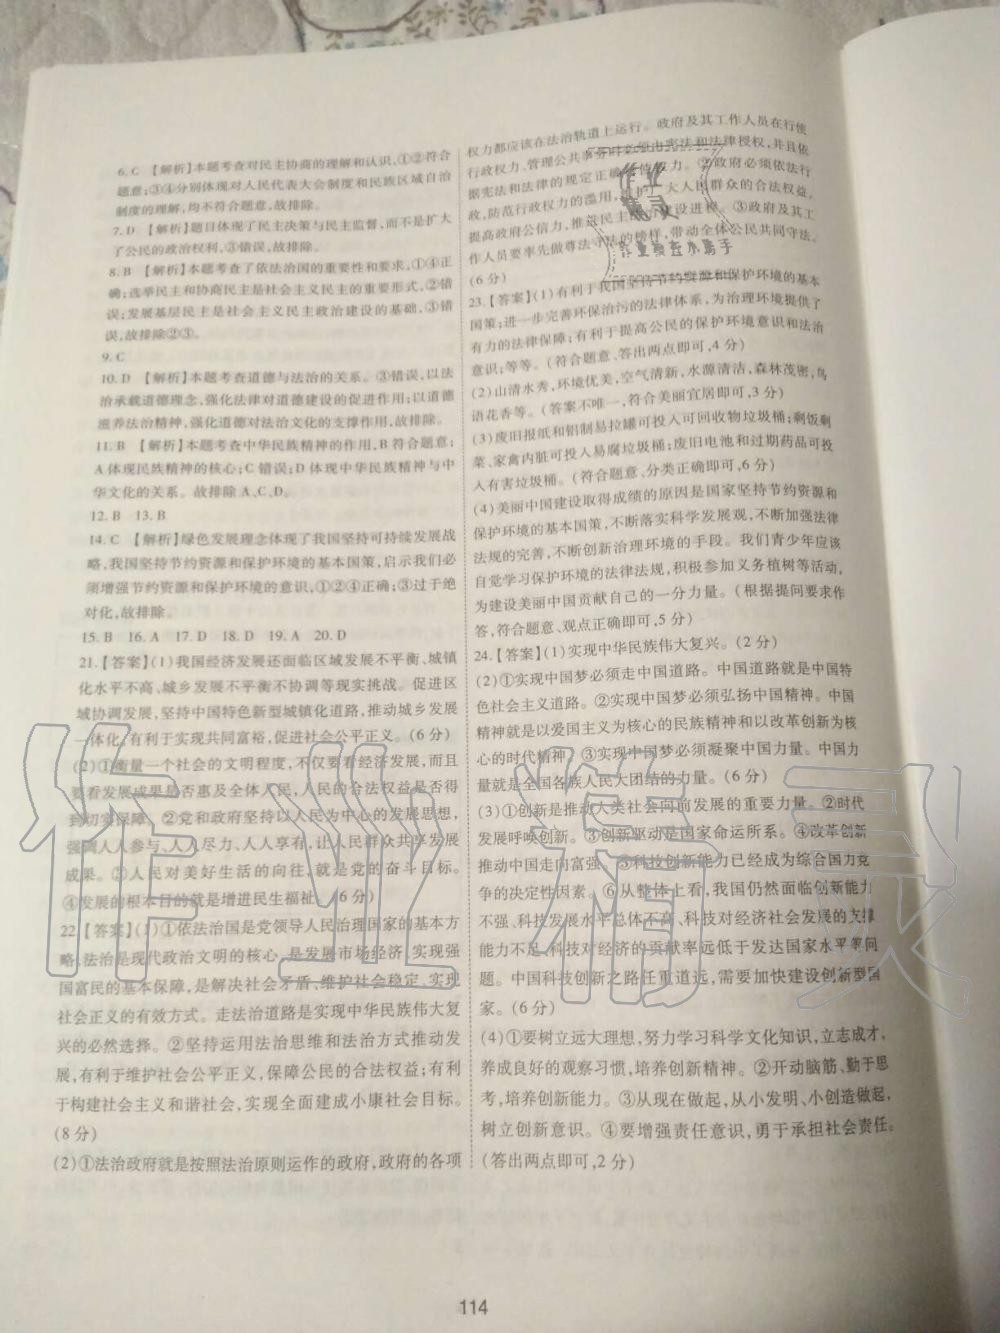 6. C 【解析】本题考查对民主协商的理解和认识,①②符合
题意;③④分别体现对人民代表大会制度和民族区域自治
制度的理解,均不符合题意,故排除。
7. D 【解析】题目体现了民主决策与民主监督,而不是扩大
了公民的政治权利,③错误,故排除。
8. B 【解析】本题考查了依法治国的重要性和要求,①④正
确;选举民主和协商民主是社会主义民主的重要形式,②错
误;发展基层民主是社会主义民主政治建设的基础,③错
误,故排除②③。
9. C
10. D 【解析】本题考查道德与法治的关系。③错误,以法
治承载道德理念,强化法律对道德建设的促进作用;以道德
滋养法治精神,强化道德对法治文化的支撑作用,故排除。
11. B 【解析】本题考查中华民族精神的作用,B符合题意;
A体现民族精神的核心;C错误;D体现中华民族精神与中
华文化的关系。故排除A、C、D。
12. B 13. B
14. C 【解析】绿色发展理念体现了我国坚持可持续发展战
略,我国坚持节约资源和保护环境的基本国策,启示我们必
须增强节约资源和保护环境的意识,①②④正确;③过于绝
对化,故排除。
15. B 16. A 17. D 18. D 19. A 20. D
21.【答案】(1)我国经济发展还面临区域发展不平衡、城镇
化水平不高、城乡发展不平衡不协调等现实挑战。促进区
域协调发展,坚持中国特色新型城镇化道路,推动城乡发展
一体化,有利于实现共同富裕,促进社会公平正义。(6分)
(2)①衡量一个社会的文明程度,不仅要看经济发展,而且
要看发展成果是否惠及全体人民,人民的合法权益是否得
到切实保障。②党和政府坚持以人民为中心的发展思想,
强调人人参与、人人尽力、人人享有,让人民群众共享发展
成果。③人民对美好生活的向往,就是党的奋斗目标。
④发展的根本目的就是增进民生福祉。(6分)
22.【答案】(1)①依法治国是党领导人民治理国家的基本方
略;法治是现代政治文明的核心,是发展市场经济、实现强
国富民的基本保障,是解决社会矛盾、维护社会稳定、实现
社会正义的有效方式。走法治道路是实现中华民族伟大复
兴的必然选择。②坚持运用法治思维和法治方式推动发
展,有利于维护社会公平正义,保障公民的合法权益;有利
于构建社会主义和谐社会,实现全面建成小康社会目标。
(8分)
(2)①法治政府就是按照法治原则运作的政府,政府的各项
权力都应该在法治轨道上运行。政府及其工作人员在行使
行政权力、管理公共事务时必须由宪法和法律授权,并且依
据宪法和法律的规定正确行使权力。②政府必须依法行
政,防范行政权力的滥用,维护广大人民群众的合法权益,
提高政府公信力,推进民主法治建设进程。③政府及其工
作人员要率先做尊法守法的榜样,带动全体公民共同守法。
(6分)
23.【答案】(1)有利于我国坚持节约资源和保护环境的基本
国策;进一步完善环保治污的法律体系,为治理环境提供了
有力的法律保障;有利于提高公民的保护环境意识和法治
意识;等等。(符合题意、答出两点即可,4分)
(2)山清水秀,环境优美,空气清新,水源清洁,森林茂密,鸟
语花香等。(答案不唯一,符合美丽宜居即可,3分)
(3)废旧报纸和铝制易拉罐可投入可回收物垃圾桶;剩饭剩
菜、家禽内脏可投入易腐垃圾桶;废旧电池和过期药品可投
入有害垃圾桶。(符合题意、分类正确即可,6分)
(4)美丽中国建设取得成绩的原因是国家坚持节约资源和
保护环境的基本国策,不断落实科学发展观,不断加强法律
法规的完善,不断创新治理环境的手段。我们青少年应该
自觉学习保护环境的法律法规,积极参加义务植树等活动,
为建设美丽中国贡献自己的一分力量。(根据提问要求作
答,符合题意、观点正确即可,5分)
24.【答案】(1)实现中华民族伟大复兴。(2分)
(2)①实现中国梦必须走中国道路。中国道路就是中国特
色社会主义道路。②实现中国梦必须弘扬中国精神。中国
精神就是以爱国主义为核心的民族精神和以改革创新为核
心的时代精神。③实现中国梦必须凝聚中国力量。中国力
量就是全国各族人民大团结的力量。(6分)
(3)①创新是推动人类社会向前发展的重要力量。②时代
发展呼唤创新。③创新驱动是国家命运所系。④改革创新
推动中国走向富强。⑤科技创新能力已经成为综合国力竞
争的决定性因素。⑥从整体上看,我国仍然面临创新能力
不强、科技发展水平总体不高、科技对经济社会发展的支撑
能力不足、科技对经济的贡献率远低于发达国家水平等问
题。中国科技创新之路任重道远,需要加快建设创新型国
家。(6分)
(4)①要树立远大理想,努力学习科学文化知识,立志成才,
养成良好的观察习惯,培养创新精神。②开动脑筋、勤于思
考,培养创新能力。③从现在做起,从小发明、小创造做起,
树立创新意识。④要增强责任意识,勇于承担社会责任。
(答出两点即可,2分)
作业
精灵
作业检查小高手
作业精灵
114